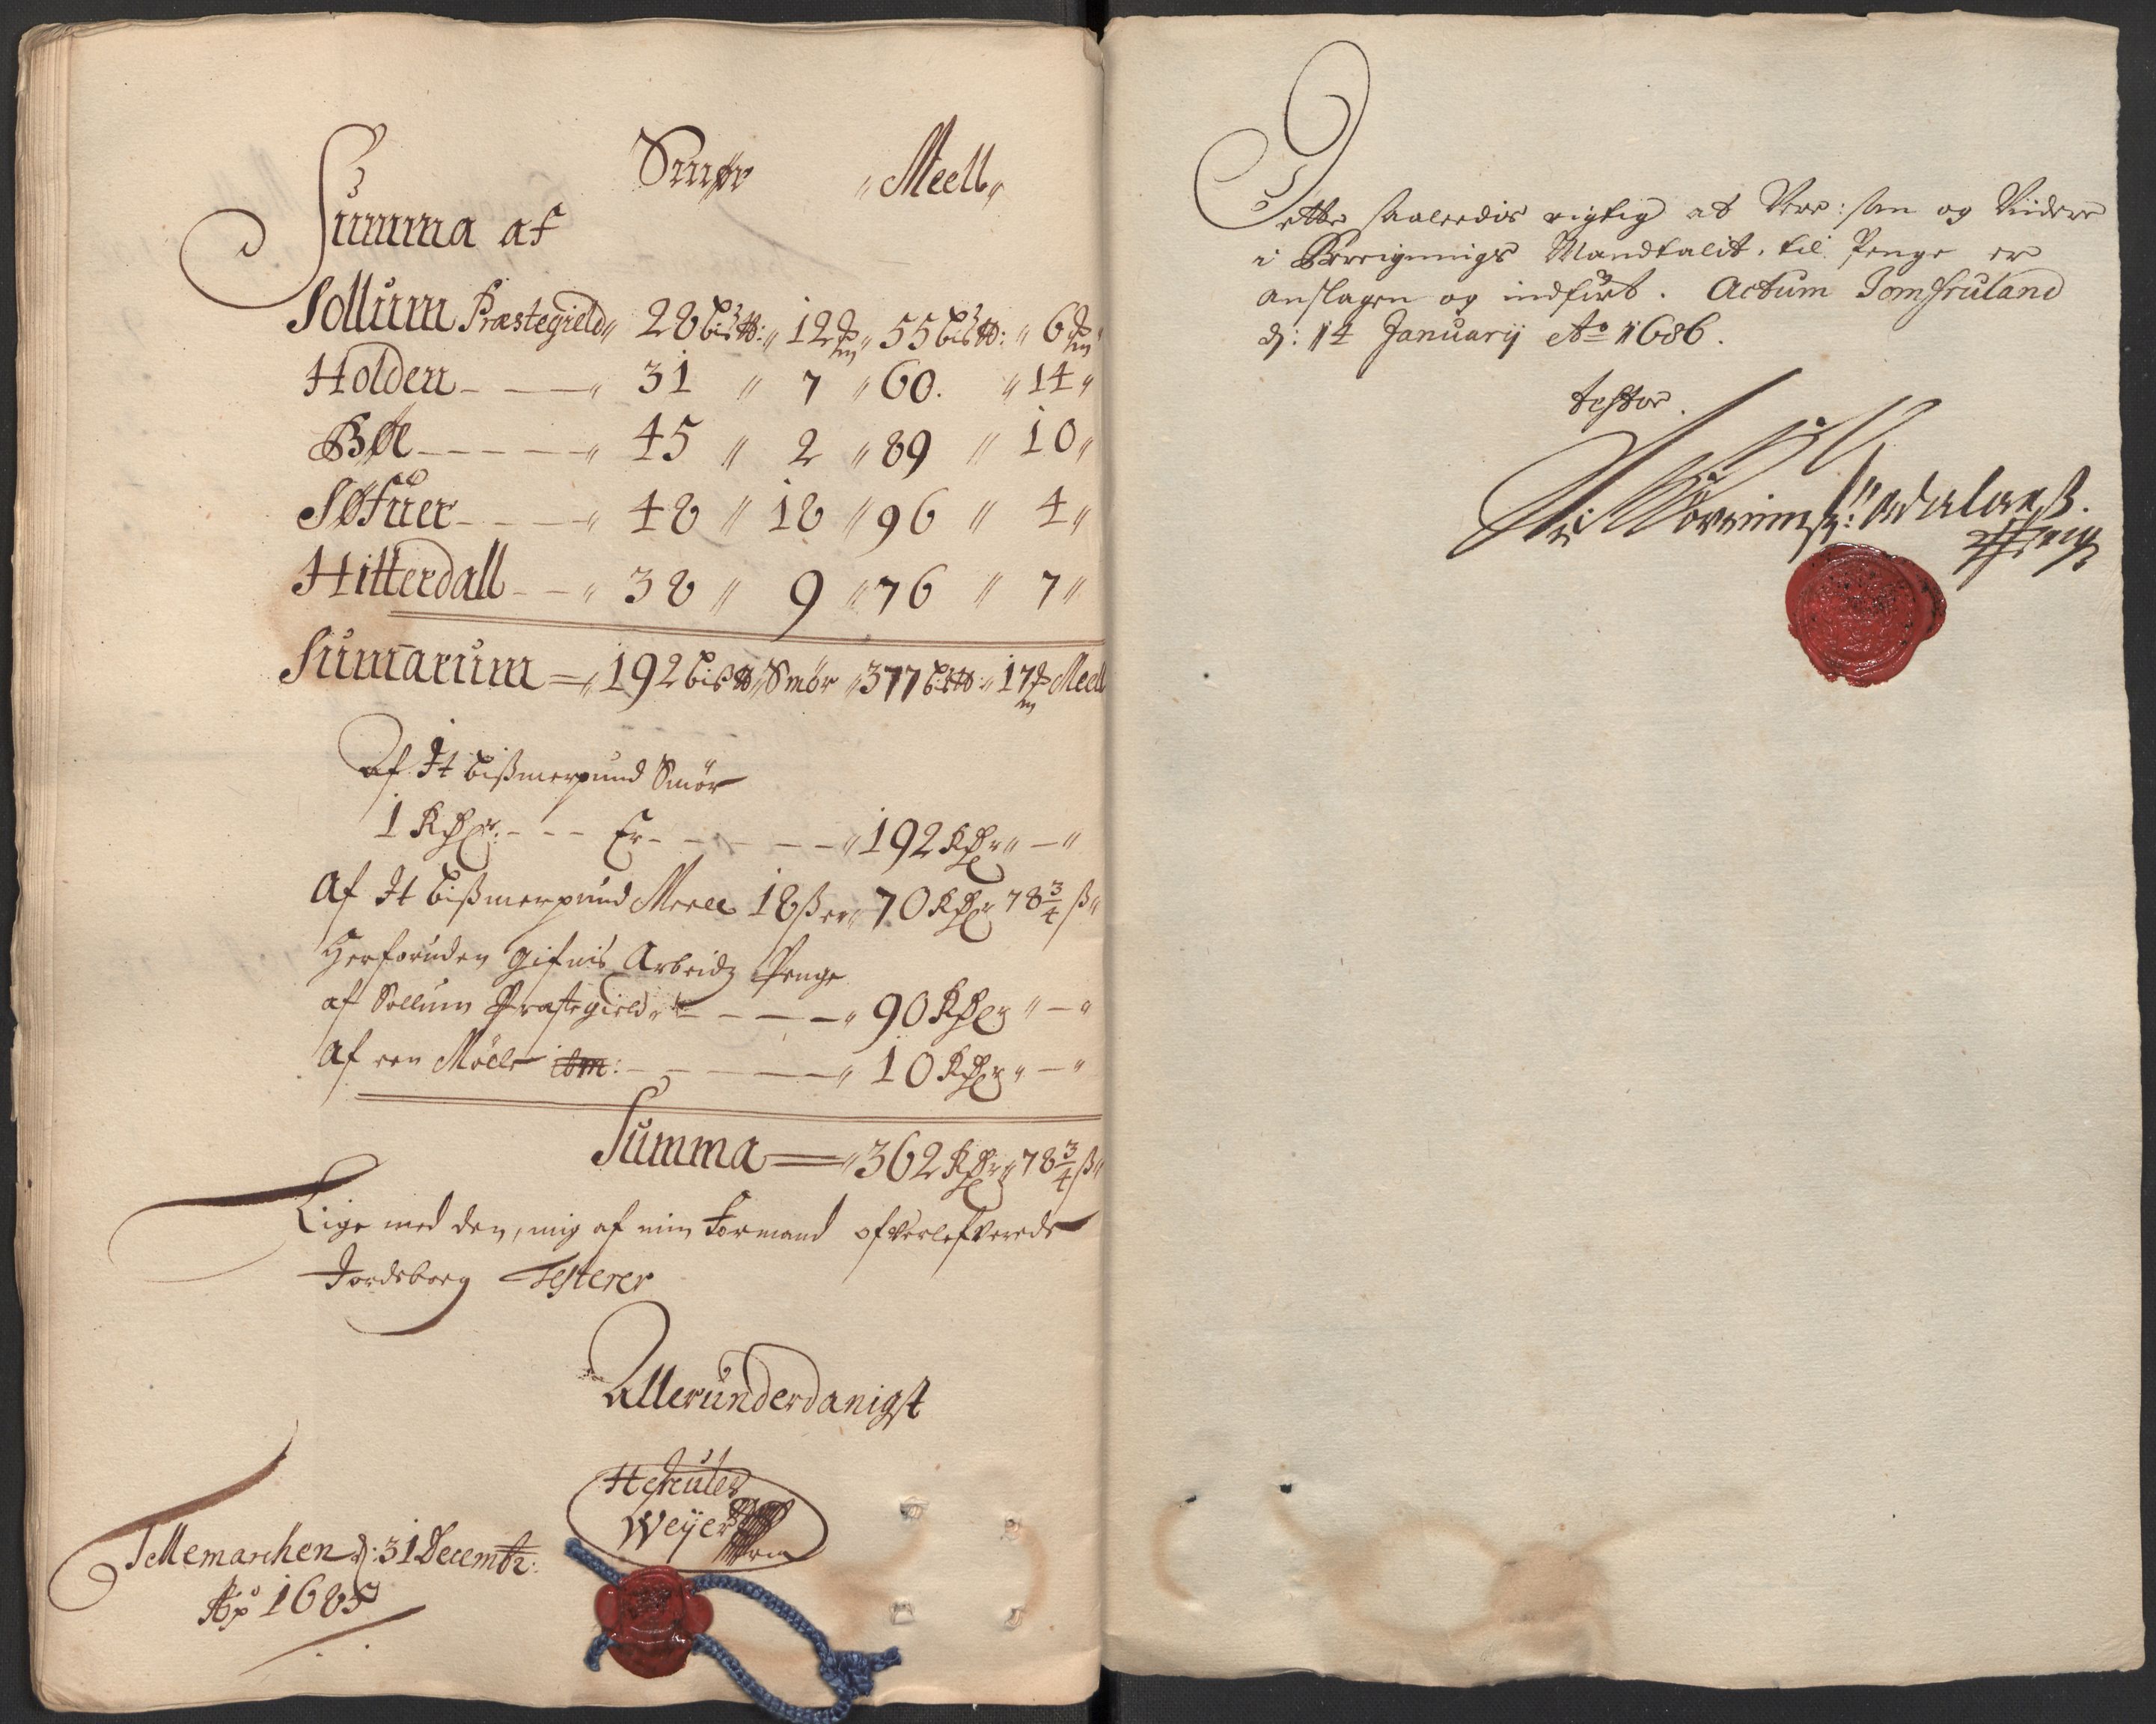 Smør " Meell "
Summa af
Sollum Præstegield " 28 bis℔: " 12 " 55 bis℔: " 6 "
Holden - — " 31 " 7 " 60. " 14 "
Bøe - - - - — " 45 " 2 " 89 " 10 "
Søfuer - - - — " 48 " 18 " 96 " 4 "
Hitterdall - - " 38 " 9 " 76 " 7 "
Sumarum = " 192 bis℔ " Smør " 377 bis℔ " 17 Meell
Af It bißmerpund Smør
1 Rdr: - - - Er - - - - — " 192 Rdr " — "
Af It bißmerpund Meell 18 ß er " 70 Rdr 78 3/4 ß "
Herforuden gifuis Arbeidz Penge
af Sollum Præstegield - - - — " 90 Rdr " — "
Af een Mølle - - - — " 10 Rdr " — "
Summa = " 362 Rdr " 78 3/4 ß "
Lige med den, mig af min Formand ofverlefverede
Jordebog Testerer
Allerunderdanigst
Hercules
Weyer
Tellemarchen d: 31 Decembr:
Ao 1685
Dette saaledis rigtig at Være: som og Viidere
i Beregnings Mandtalit, til Penge er
anslagen og indfürt. Actum Jomfruland
d: 14 Januarij Ao 1686.
testor.